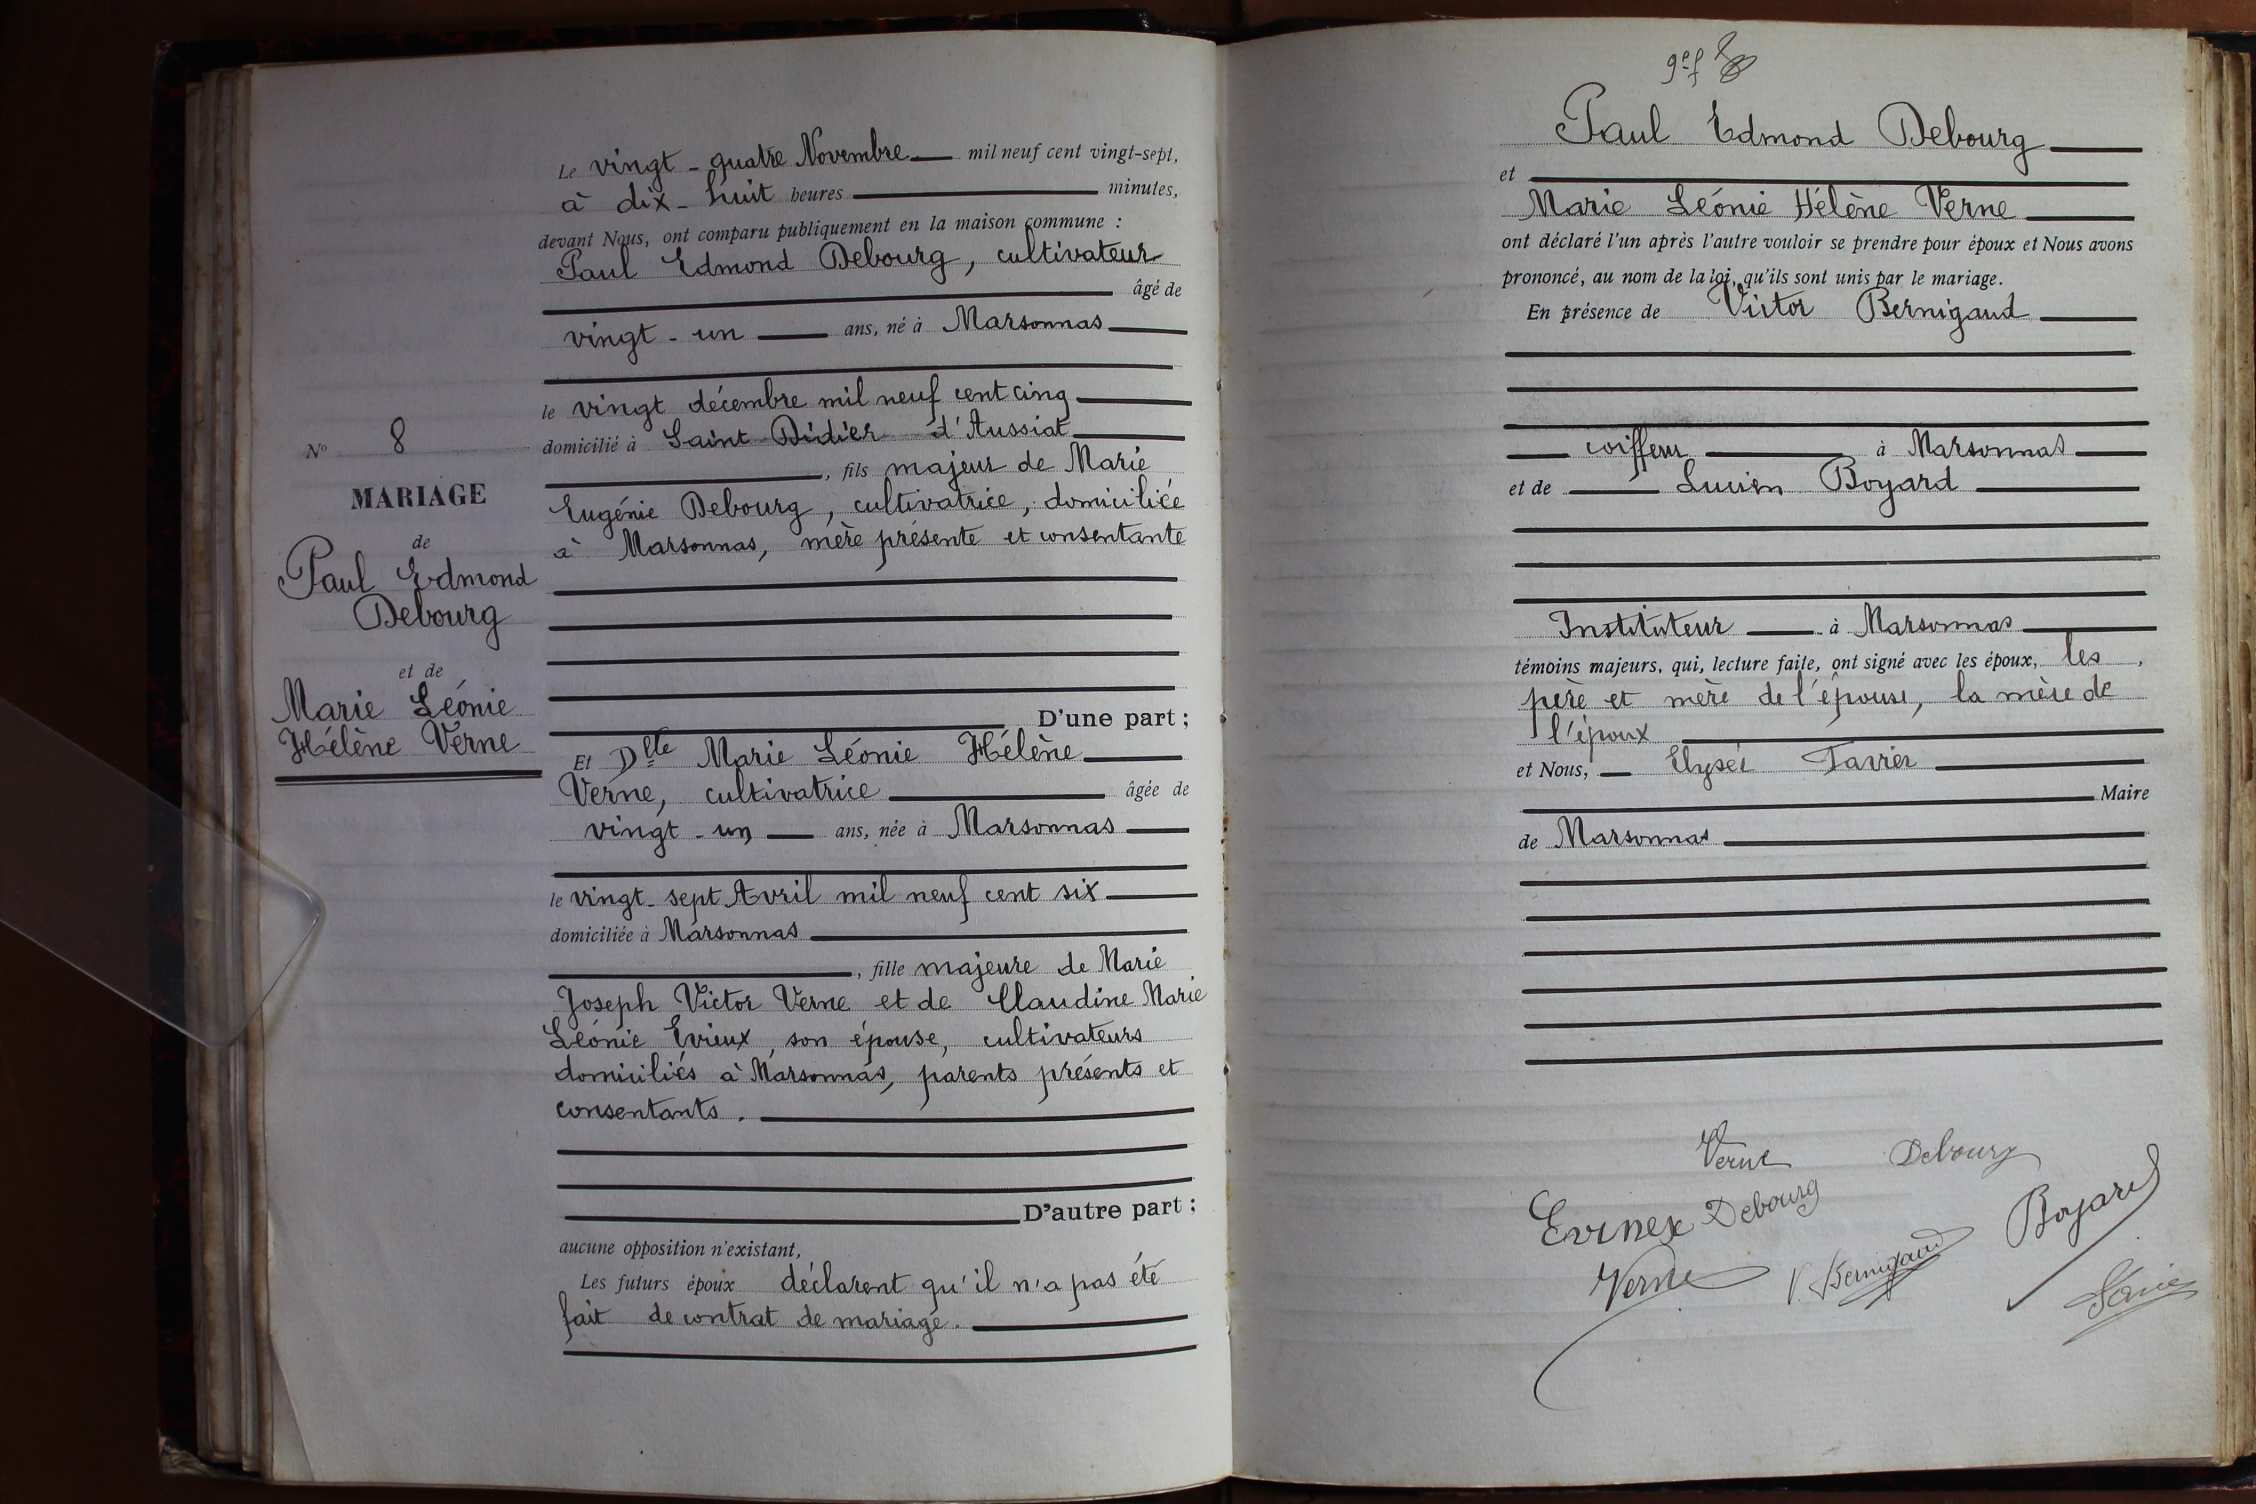 Le vingt-quatre Novembre mil neuf cent vingt-sept,
à dix-huit heures minutes,
devant Nous, ont comparu publiquement en la maison commune :
Paul Edmond Debourg, cultivateur
âgé de
vingt-un ans, né à Marsonnas
le vingt décembre mil neuf cent cinq
domicilié à Saint-Didier d'Aussiat
, fils majeur de Marie
Eugénie Debourg, cultivatrice, domiciliée
à Marsonnas, mère présente et consentante
D'une part ;
Et Dlle Marie Léonie Hélène
Verne, cultivatrice âgée de
vingt-un ans, née à Marsonnas
le vingt-sept Avril mil neuf cent six
domiciliée à Marsonnas
, fille majeure de Marie
Joseph Victor Verne et de Claudine Marie
Léonie Evieux, son épouse, cultivateurs
domiciliés à Marsonnas, parents présents et
consentants.
D'autre part ;
aucune opposition n'existant,
Les futurs époux déclarent qu'il n'a pas été
fait de contrat de mariage.
N° 8
MARIAGE
de
Paul Edmond
Debourg
et de
Marie Léonie
Hélène Verne
9e f
Paul Edmond Debourg
et
Marie Léonie Hélène Verne
ont déclaré l'un après l'autre vouloir se prendre pour époux et Nous avons
prononcé, au nom de la loi, qu'ils sont unis par le mariage.
En présence de Victor Bernigaud
coiffeur à Marsonnas
et de Lucien Boyard
Instituteur à Marsonnas
témoins majeurs, qui, lecture faite, ont signé avec les époux, les ,
père et mère de l'épouse, la mère de
l'époux
et Nous, Elysée Favier
Maire
de Marsonnas
Verne Debourg
Evinex Debourg Boyard
Verne V. Bernigaud